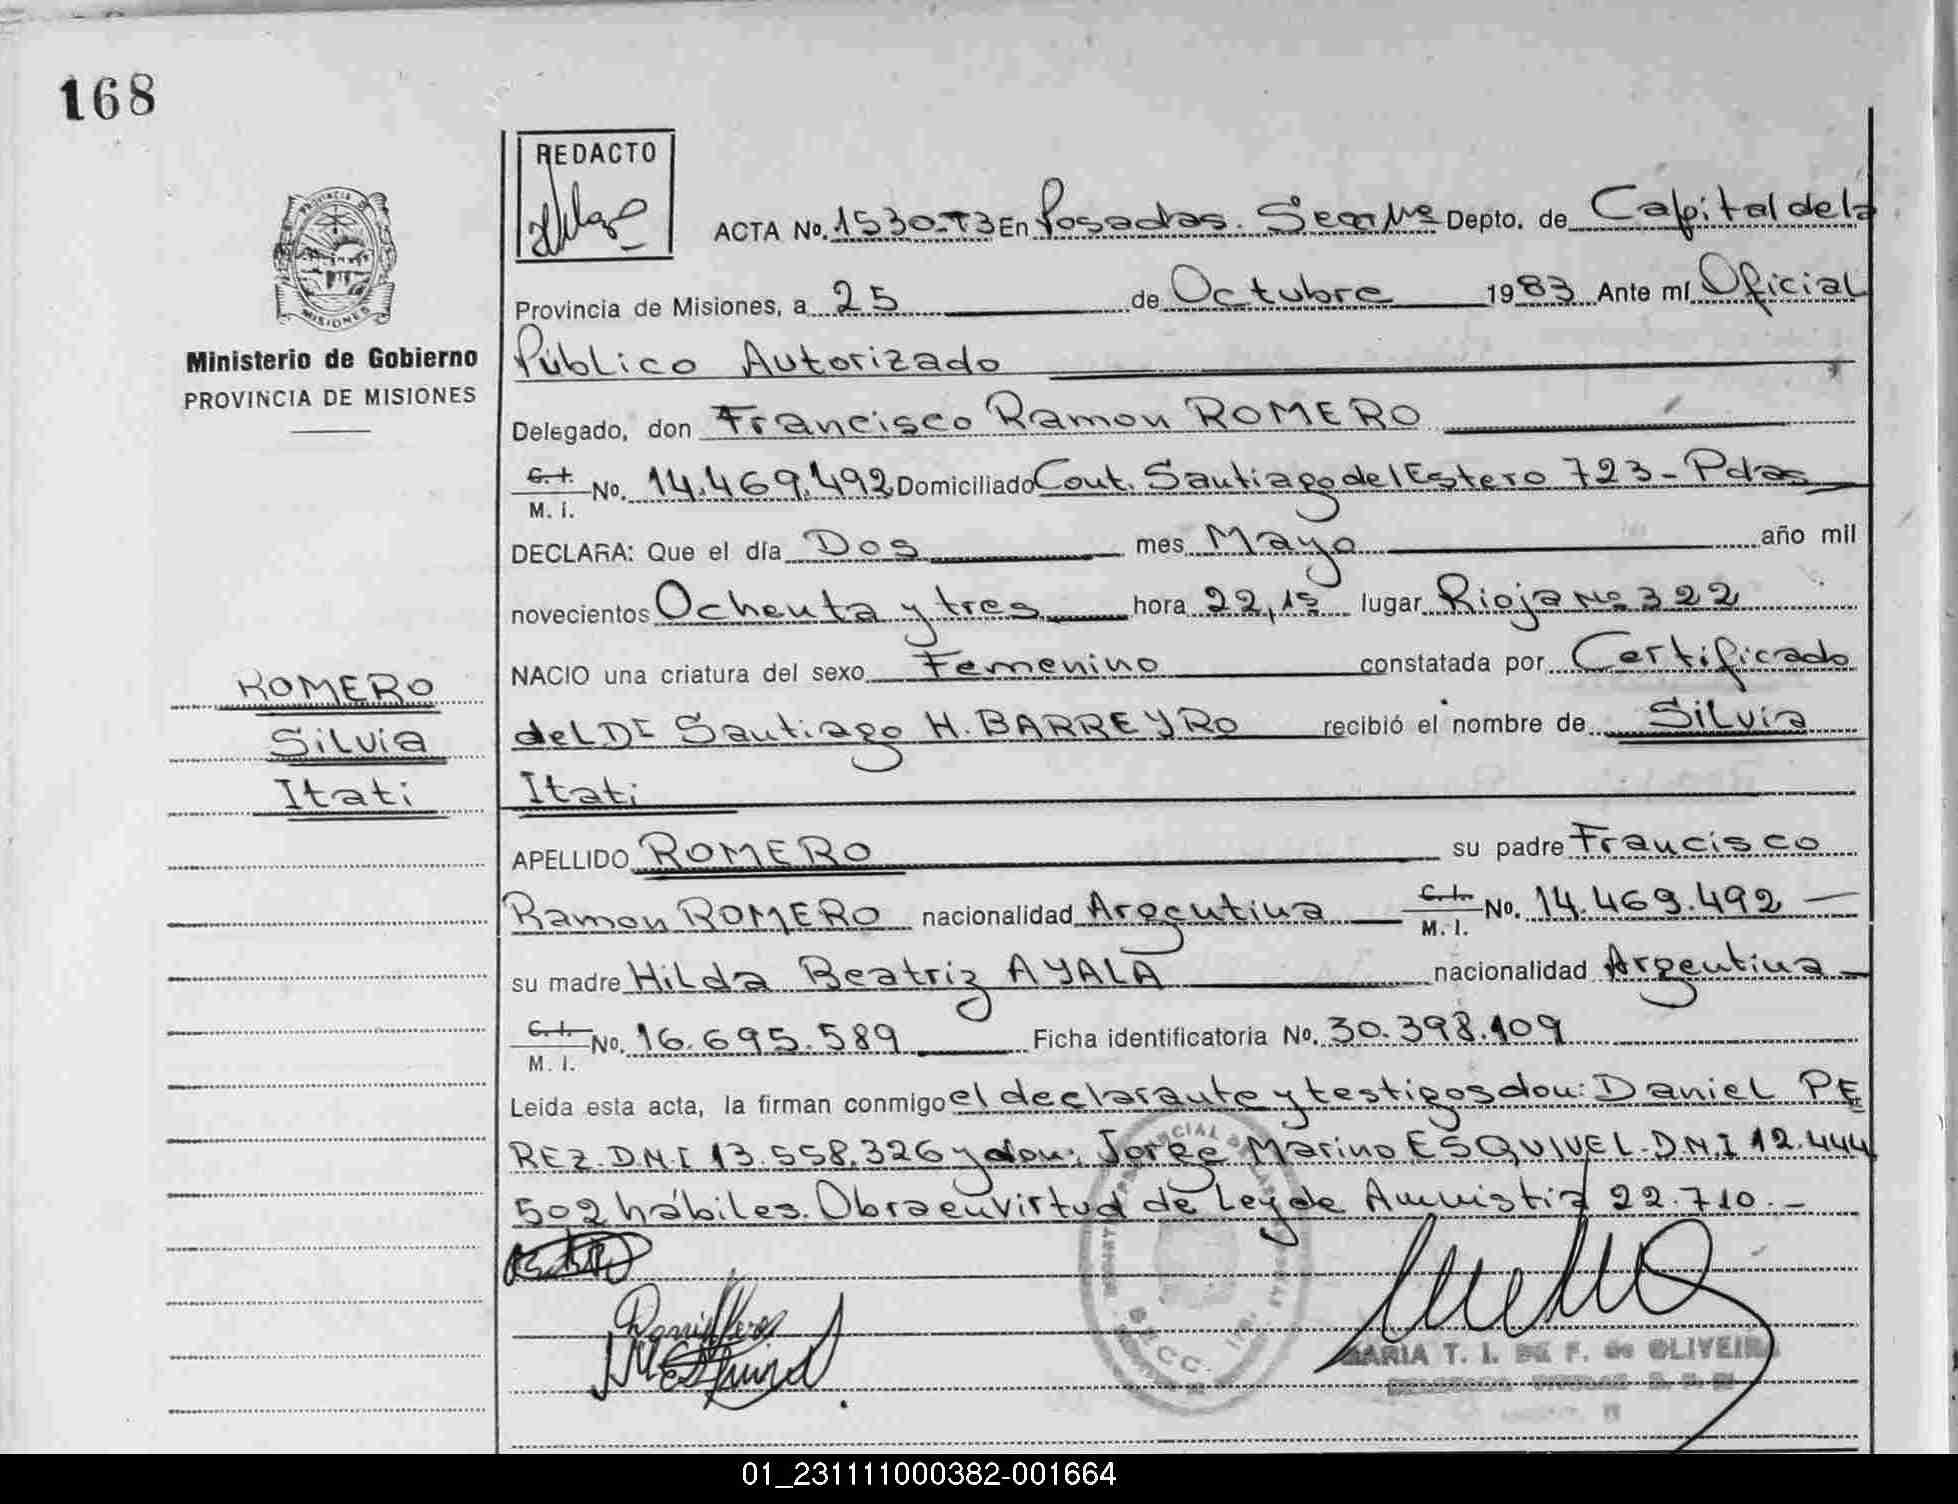 168
REDACTO
PROVINCIA DE
MISIONES
Ministerio de Gobierno
PROVINCIA DE MISIONES
ROMERO
Silvia
Itati
ACTA No. 1530-T3 En Posadas. Secc 1ra Depto. de Capital dela
Provincia de Misiones, a 25 de Octubre 1983 Ante mí Oficial
Público Autorizado
Delegado, don Francisco Ramon ROMERO
C.I. M. I. No. 14.469.492 Domiciliado Cont. Santiago del Estero 723- Pdas
DECLARA: Que el día Dos mes Mayo año mil
novecientos Ochenta y tres hora 22,15 lugar Rioja Nº 322
NACIO una criatura del sexo Femenino constatada por Certificado
del Dr Santiago H. BARREYRO recibió el nombre de Silvia
Itati
APELLIDO ROMERO su padre Francisco
Ramon ROMERO nacionalidad Argentina C.I. M. I. No. 14.469.492
su madre Hilda Beatriz AYALA nacionalidad Argentina
C.I. M. I. No. 16.695.589 Ficha identificatoria No. 30.398.109
Leida esta acta, la firman conmigo el declarante y testigos don: Daniel PE
REZ. D.N.I 13.558.326 y don: Jorge Marino ESQUIVEL. D.N.I 12.444
502 hábiles. Obra en virtud de Ley de Amnistia 22.710.-
MARIA T. I. DE F. de OLIVEIRA
01_231111000382-001664